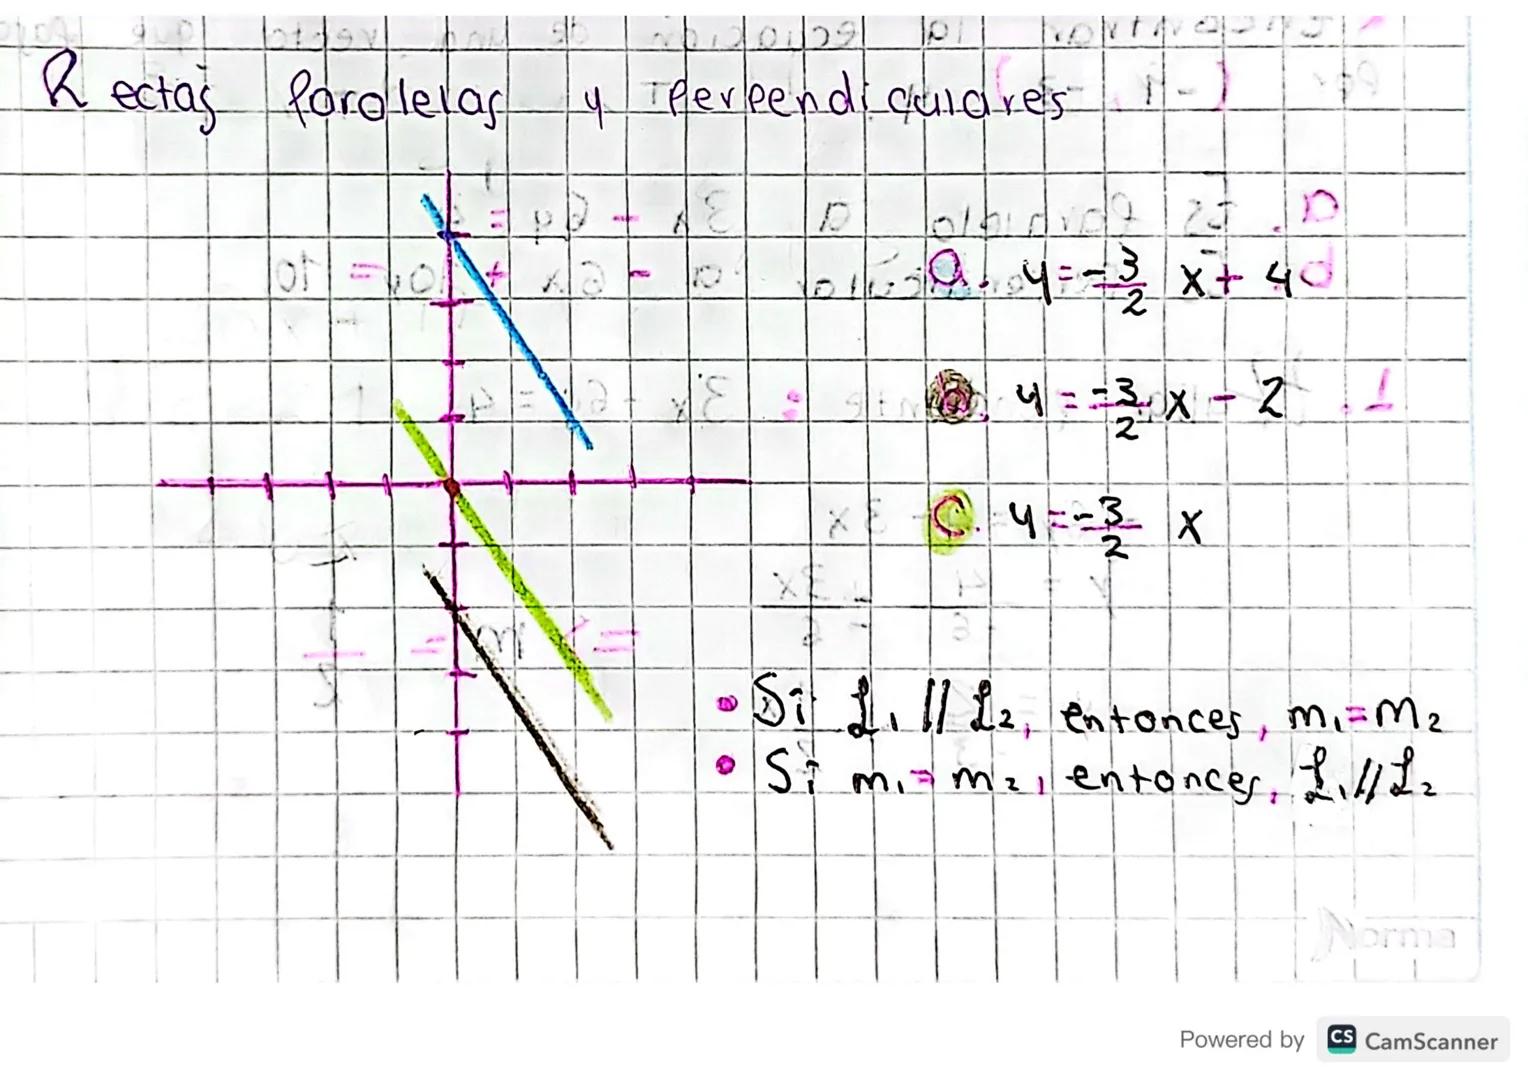 Rectas Paralelas y Perpendiculares
a. y = -3/2 x + 4
b. y = -3/2 x - 2
c. y = -3/2 x
• Si L₁ // L₂, entonces, m₁ = m₂
• Si m₁ = m₂, entonces, L₁ // L₂
Norma
Powered by CS CamScanner